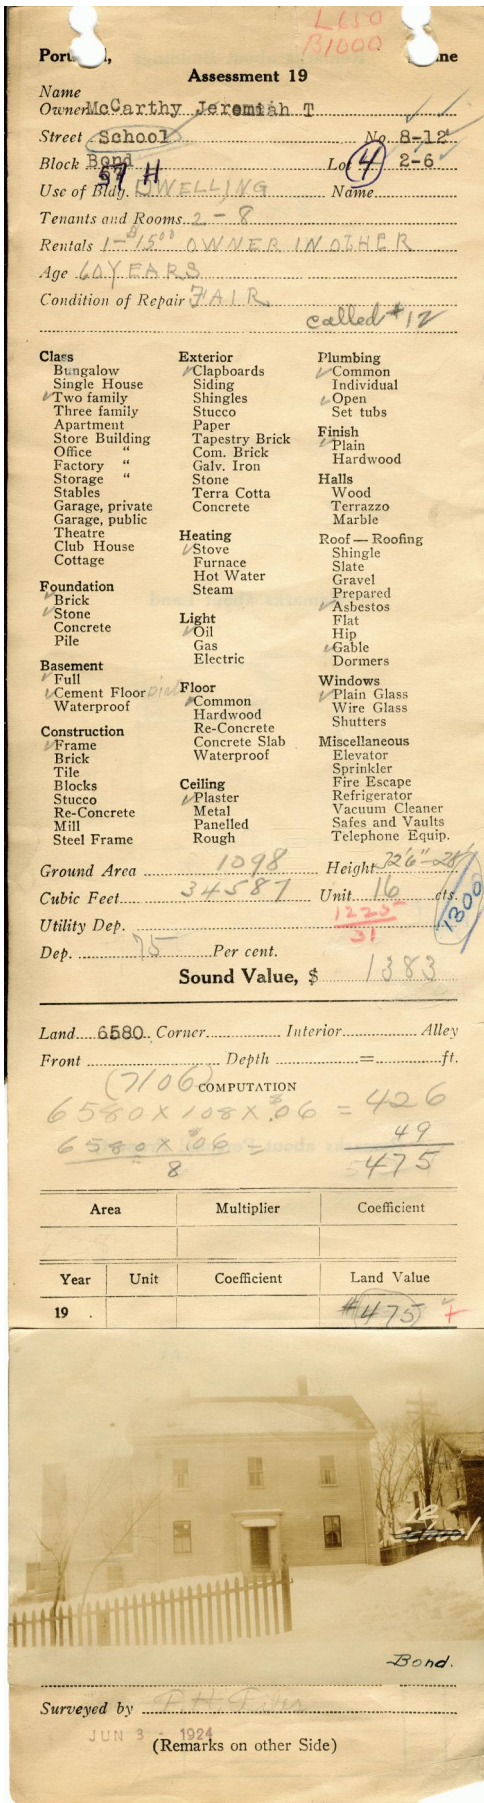 L650
B1000
Port d, ine
Assessment 19
Name
Owner McCarthy Jeremiah T
Street School No. 8-12
Block Bond Lot 4 2-6
57 H
Use of Bldg. DWELLING Name
Tenants and Rooms 2 - 8
Rentals 1-$15.00 OWNER IN OTHER
Age 60 YEARS
Condition of Repair FAIR
called #12
Class
Bungalow
Single House
✓Two family
Three family
Apartment
Store Building
Office "
Factory "
Storage "
Stables
Garage, private
Garage, public
Theatre
Club House
Cottage
Foundation
✓Brick
✓Stone
Concrete
Pile
Basement
✓Full
✓Cement Floor
Waterproof
Construction
✓Frame
Brick
Tile
Blocks
Stucco
Re-Concrete
Mill
Steel Frame
Exterior
✓Clapboards
Siding
Shingles
Stucco
Paper
Tapestry Brick
Com. Brick
Galv. Iron
Stone
Terra Cotta
Concrete
Heating
✓Stove
Furnace
Hot Water
Steam
Light
✓Oil
Gas
Electric
Floor
✓Common
Hardwood
Re-Concrete
Concrete Slab
Waterproof
Ceiling
✓Plaster
Metal
Panelled
Rough
Plumbing
✓Common
Individual
✓Open
Set tubs
Finish
✓Plain
Hardwood
Halls
Wood
Terrazzo
Marble
Roof — Roofing
Shingle
Slate
Gravel
Prepared
✓Asbestos
Flat
Hip
✓Gable
Dormers
Windows
✓Plain Glass
Wire Glass
Shutters
Miscellaneous
Elevator
Sprinkler
Fire Escape
Refrigerator
Vacuum Cleaner
Safes and Vaults
Telephone Equip.
Ground Area 1098 Height 32'6"-28'
Cubic Feet 34587 Unit 16 cts.
1300
Utility Dep. 1225
31
Dep. 75 Per cent.
Sound Value, $ 1383
Land 6580 Corner Interior Alley
Front Depth = ft.
(7106) COMPUTATION
6580 X 108 X $.06 = 426
6580 X $.06 = 49
8 475
Area Multiplier Coefficient
Year Unit Coefficient Land Value
19 #475
12
School
Bond.
Surveyed by
JUN 3 - 1924
(Remarks on other Side)